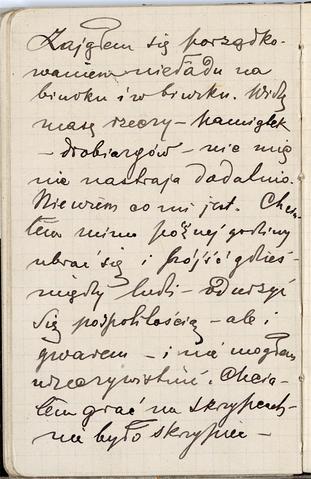 Zająłem się porządko-
waniem nieładu na
biurku i w biurku. Widzę
masę rzeczy – pamiątek
– drobiazgów – nic mię
nie nastraja dodatnio.
Nie wiem co mi jest. Chcia-
łem mimo późnej godziny
ubrać się i pójść gdzieś
między ludzi – odurzyć
się pospolitością – ale i
gwarem – i nie mogłem
urzeczywistnić. Chcia-
łem grać na skrzypcach –
nie było skrzypiec –